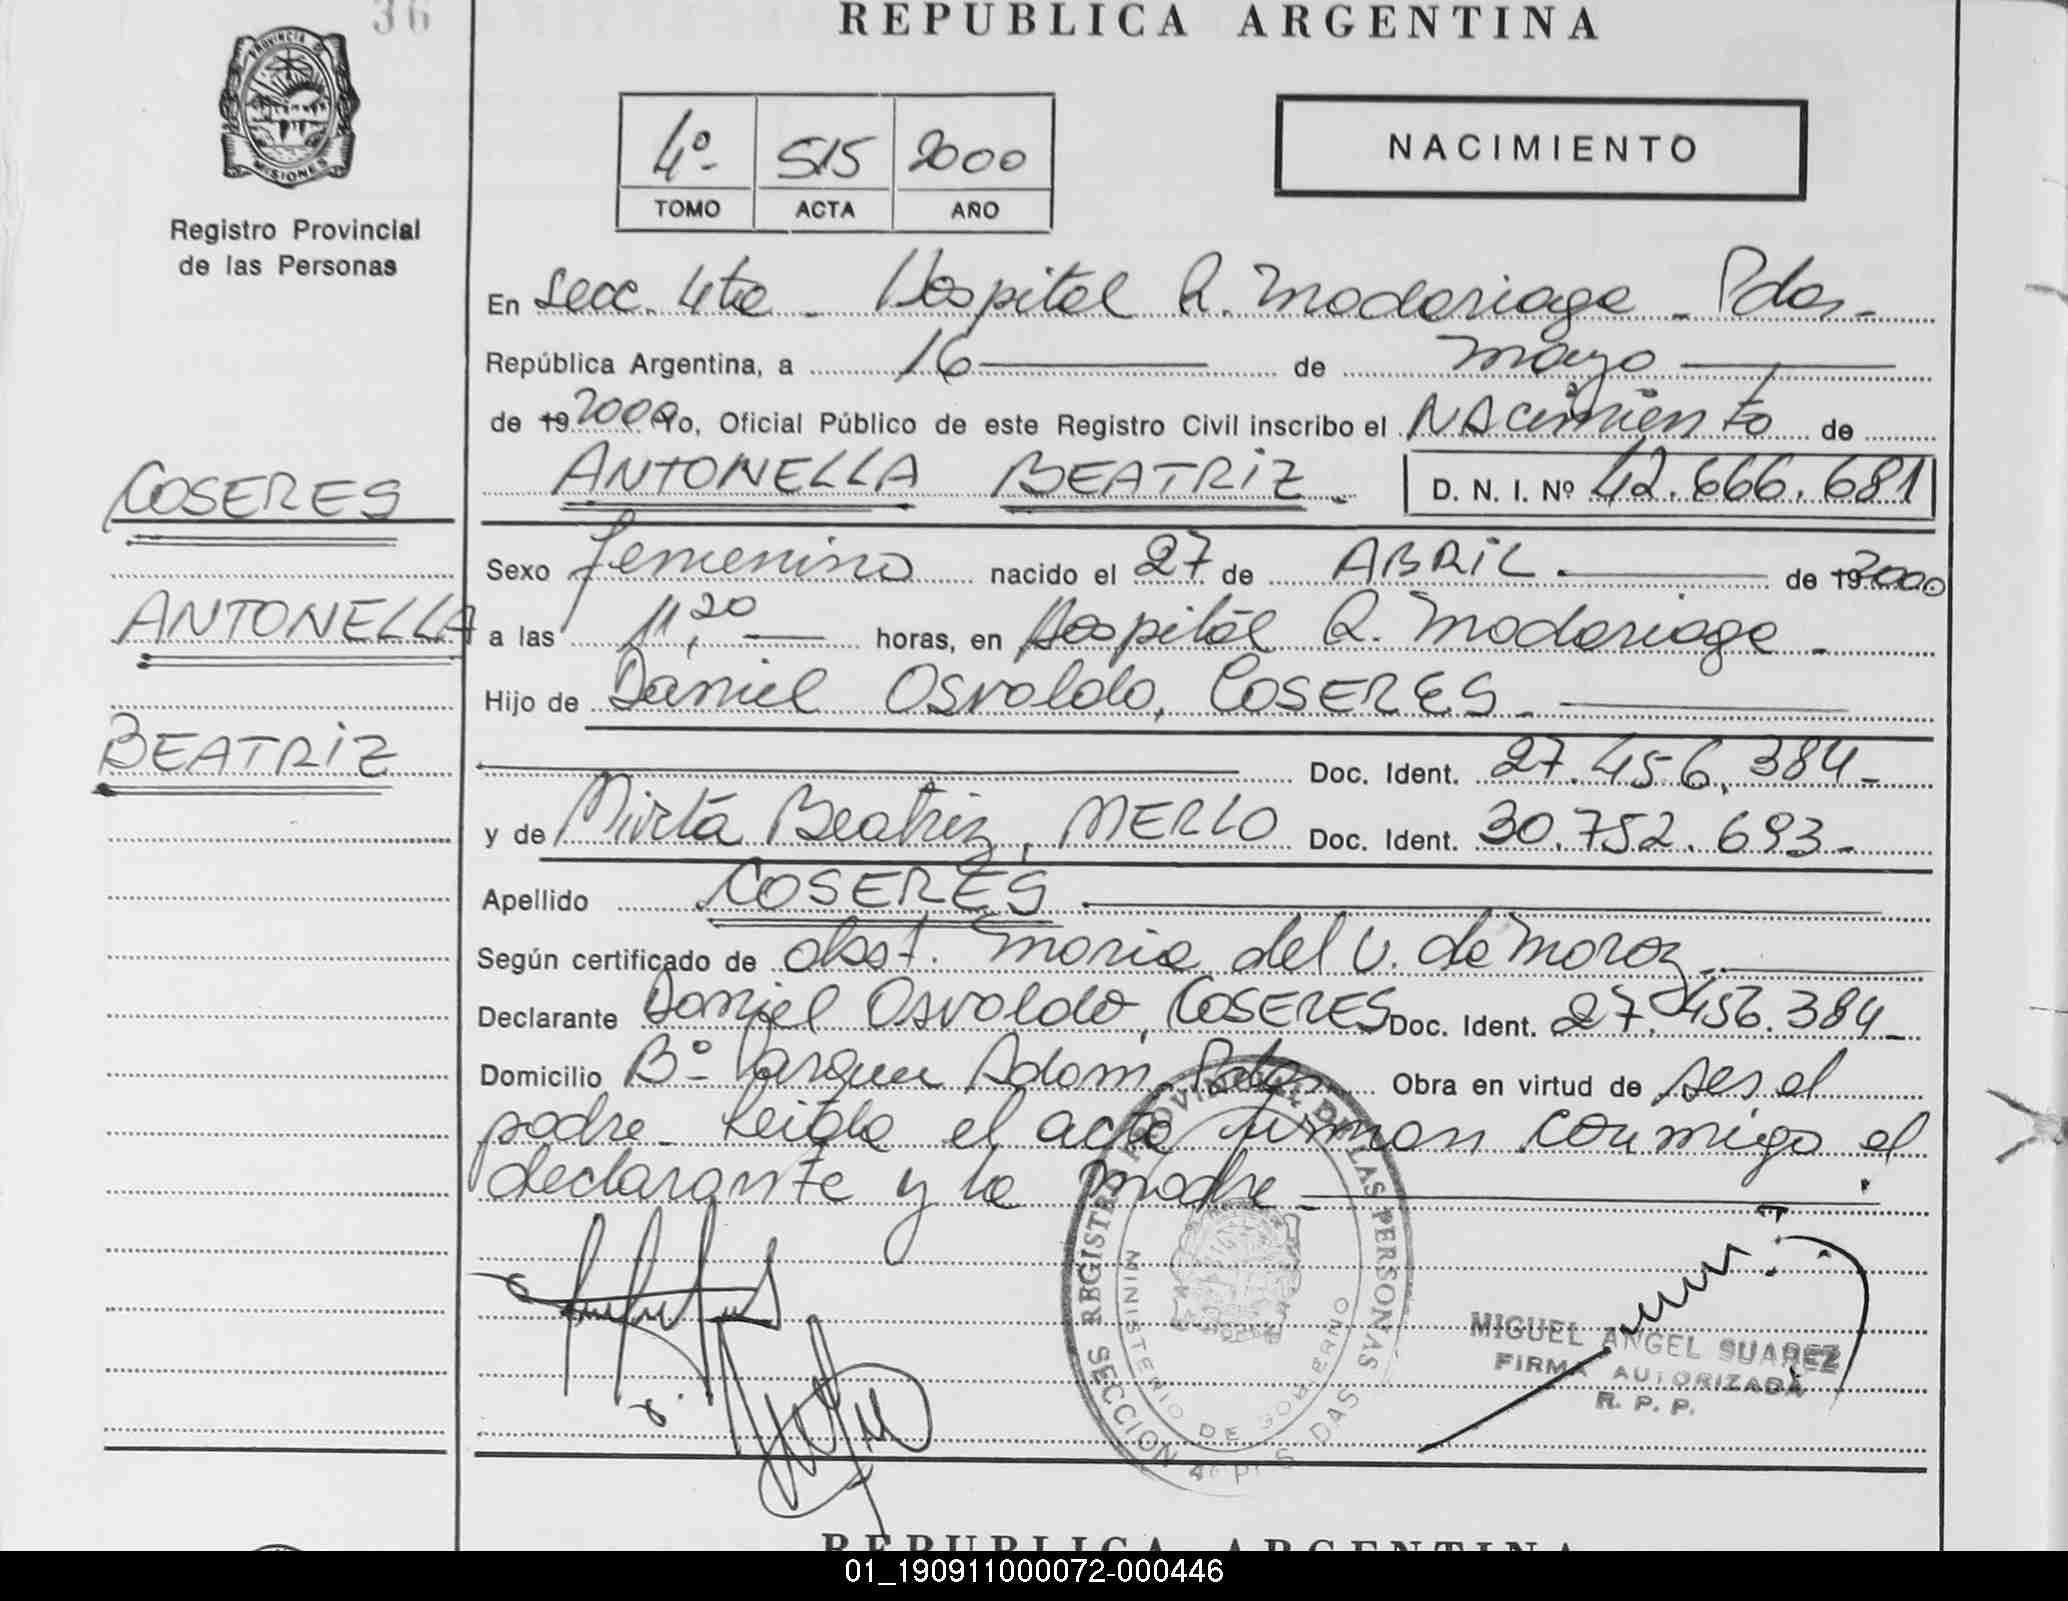 36
REPUBLICA ARGENTINA
PROVINCIA DE
MISIONES
Registro Provincial
de las Personas
4º- 515 2000
TOMO ACTA AÑO
NACIMIENTO
En Secc. 4ta - Hospital R. Madariaga - Pdas.-
República Argentina, a 16 de mayo
de 19 2000 Yo, Oficial Público de este Registro Civil inscribo el NAcimiento de
ANTONELLA BEATRIZ.- D. N. I. Nº 42.666.681
COSERES
Sexo femenino nacido el 27 de ABRIL. de 19 2000
ANTONELLA
a las 11,20 horas, en Hospital R. Madariaga -
Hijo de Daniel Osvaldo, COSERES -
BEATRIZ
Doc. Ident. 27.456.384-
y de Mirta Beatriz, MERLO Doc. Ident. 30.752.693-
Apellido COSERES
Según certificado de obst. Maria del V. de Moroz -
Declarante Daniel Osvaldo, COSERES Doc. Ident. 27.456.384-
Domicilio Bº Parque Adam - Pdas Obra en virtud de ser el
padre - leida el acta firman conmigo el
declarante y la madre -
REGISTRO PROVINCIAL DE LAS PERSONAS
MINISTERIO DE GOBIERNO
SECCION 4ª
MIGUEL ANGEL SUAREZ
FIRMA AUTORIZADA
R. P. P.
REPUBLICA ARGENTINA
01_190911000072-000446